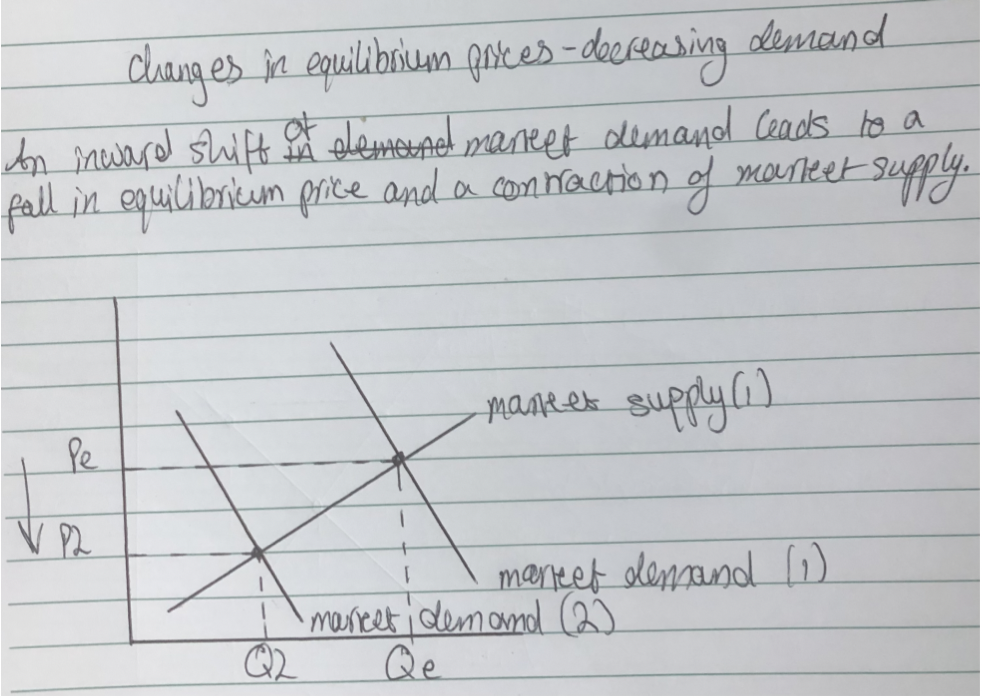 Changes in equilibrium prices - decreasing demand
An inward shift of in demand market demand leads to a
fall in equilibrium price and a contraction of market supply.
market supply (1)
Pe
P2
market demand (1)
market demand (2)
Q2 Qe